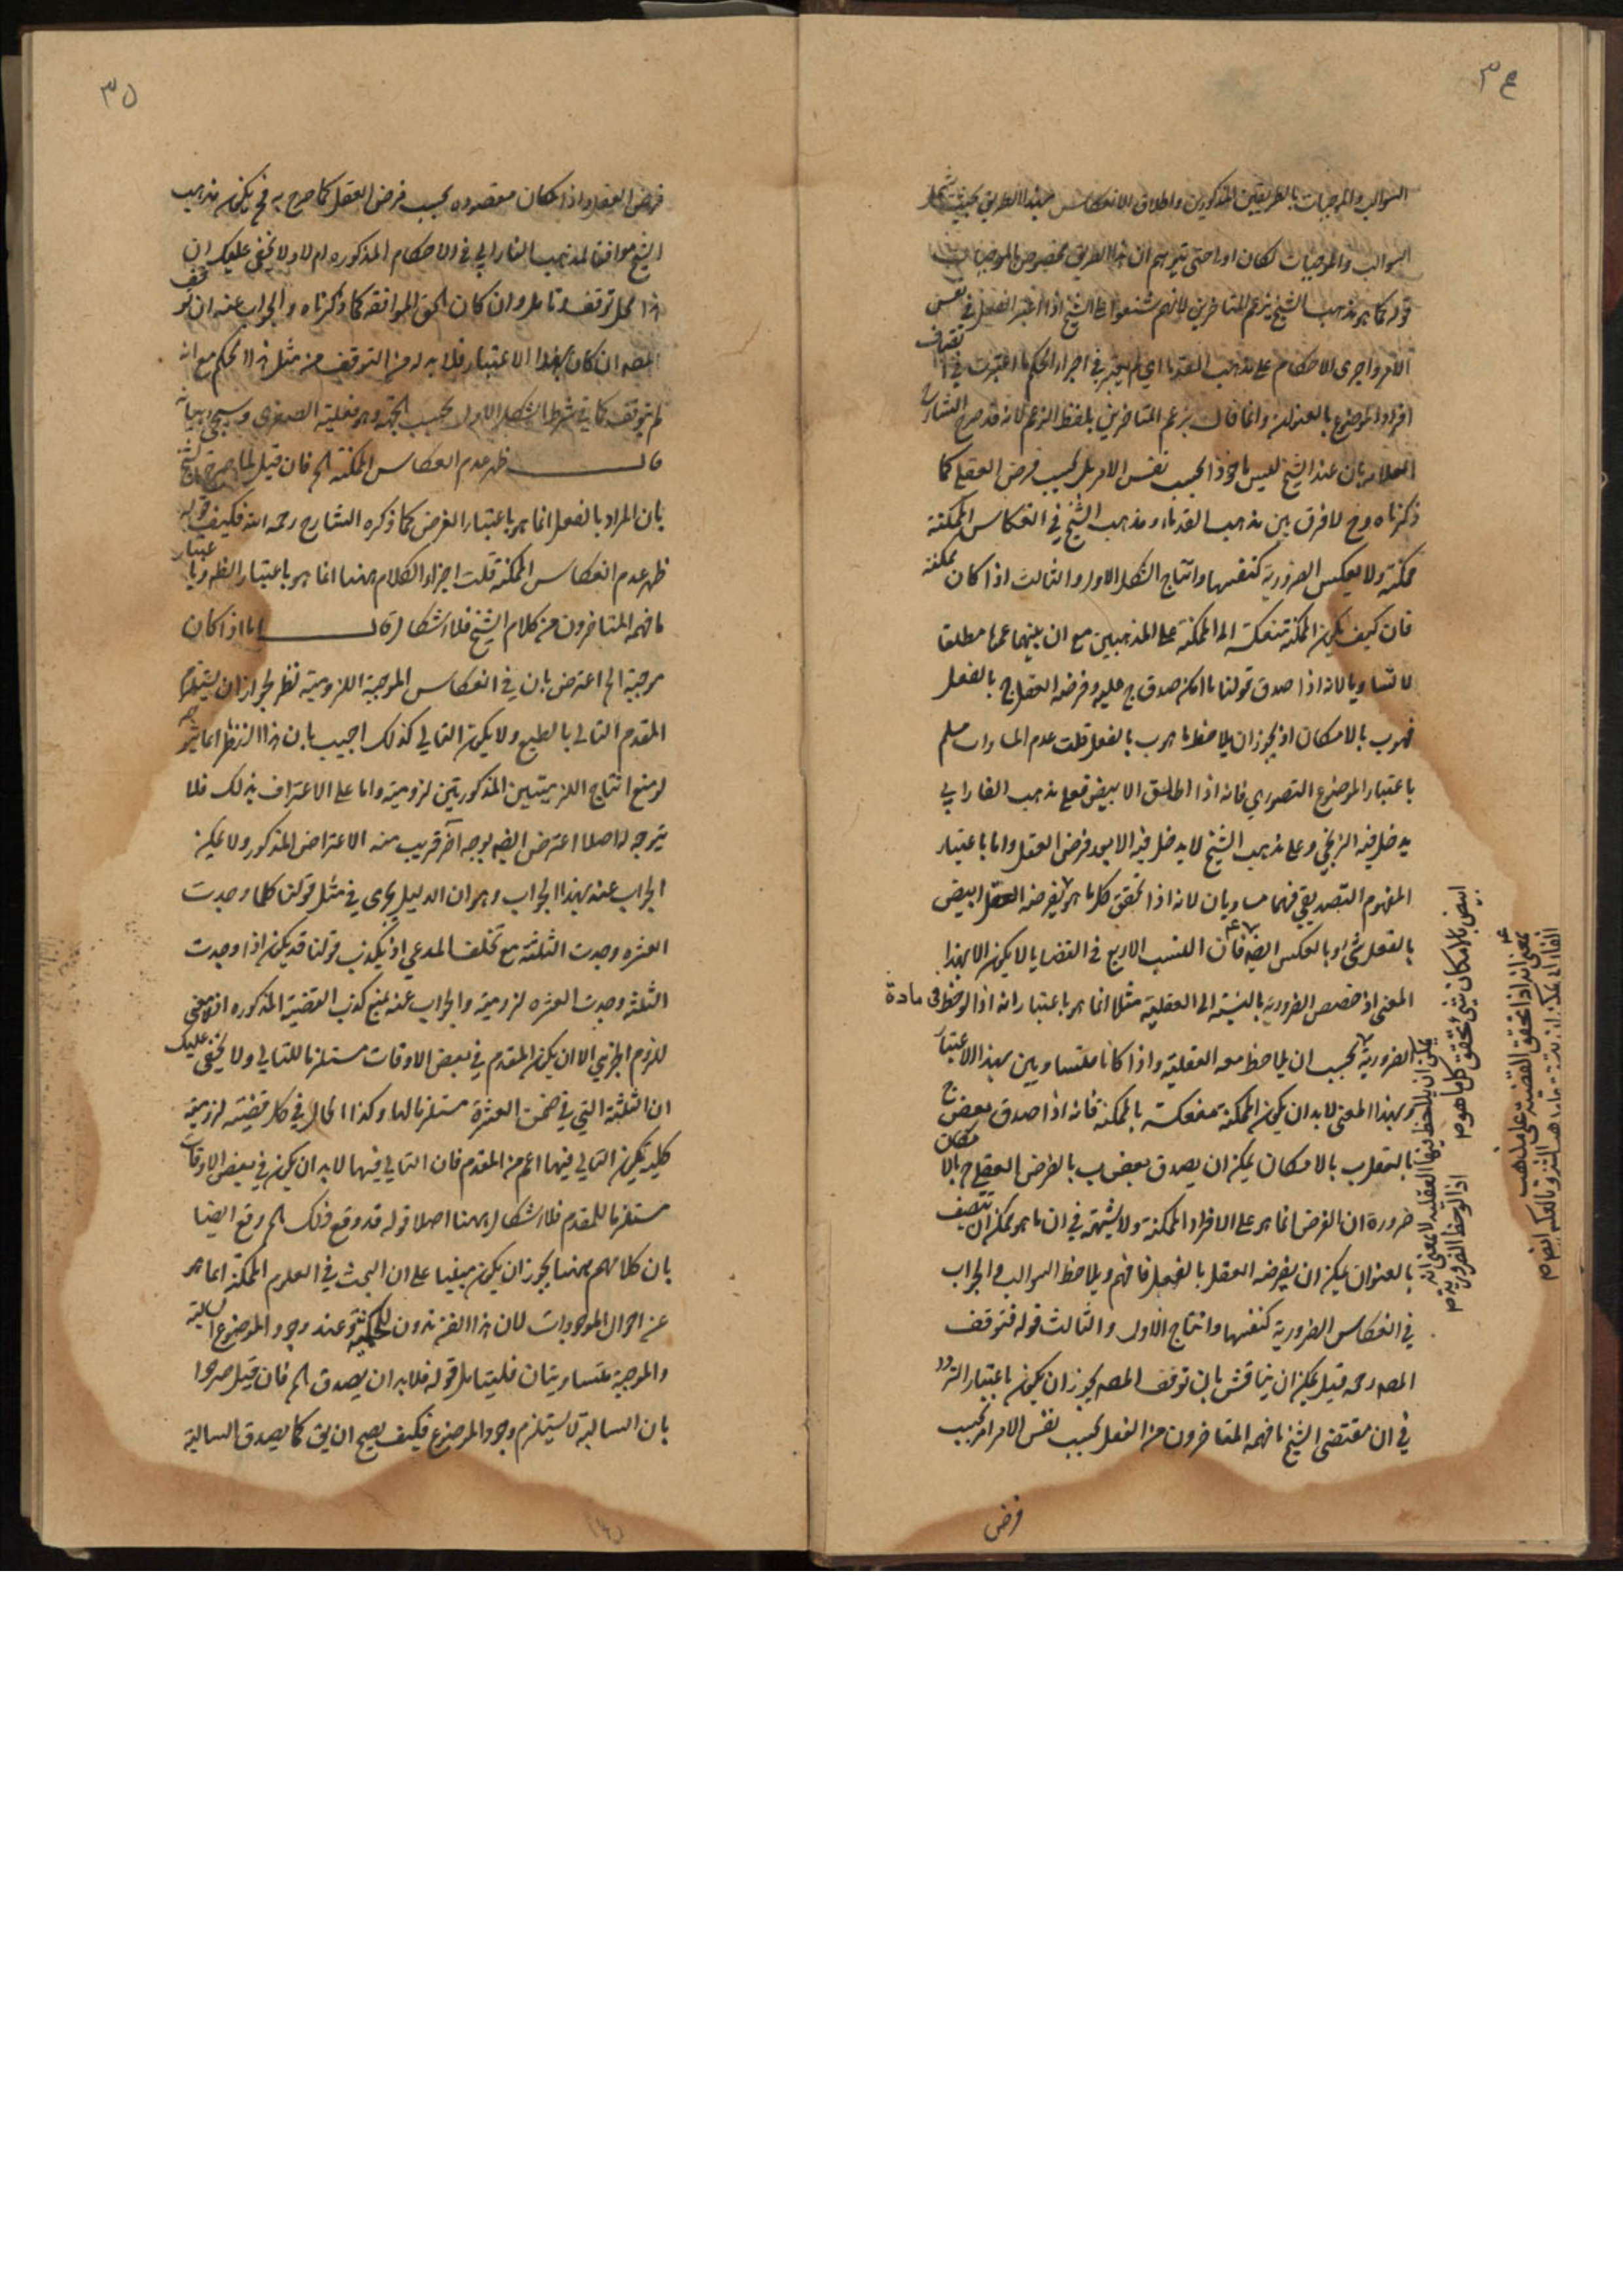 ٣٤
السوالب والموجبات بالطريقين المذكورين واطلاق الانعكاس هذا الطريق بحيث يشمل
السوالب والموجبات لكان اولى حتى يتوهم ان هذا الطريق مخصوص بالموجبات
قوله كما هو مذهب الشيخ بزعم المتاخرين لانهم شنعوا على الشيخ اذا اعتبر الفعل في نفس
الامر واجرى الاحكام على مذهب القدماء اي لم يعتبر في اجراء الحكم ما اعتبرت في اتصاف
افراد الموضوع بالعنوان وانما قال بزعم المتاخرين بلفظ الزعم لانه قد صرح الشارح
العلامة بان عند الشيخ ليس ماخوذا بحسب نفس الامر بل بحسب فرض العقل كما
ذكرناه وح لا فرق بين مذهب القدماء ومذهب الشيخ في انعكاس الممكنة
ممكنة ولا بعكس الضرورية كنفسها وانتاج الشكل الاول والثالث اذا كان ممكنة
فان كيف يكون الممكنة تنعكس الى الممكنة على المذهبين مع ان بينهما عموما مطلقا
لا تساويا لانه اذا صدق قولنا ما امكن صدق ج عليه وفرضه العقل ج بالفعل
فهو ب بالامكان اذ يجوز ان يلاحظ ما هو ب بالفعل قلت عدم المساوات مسلم
باعتبار الموضوع التصوري فانه اذا اطلق الابيض فعلى مذهب الفارابي
يدخل فيه الزنجي وعلى مذهب الشيخ لا يدخل فيه الا بعد فرض العقل واما باعتبار
المفهوم التصديقي فهما مساويان لانه اذا تحقق كل ما هو يفرضه العقل ابيض
بالفعل شئ او بالعكس ايضه فان النسب الاربع في القضايا لا يكون الا بهذا
المعنى اذ خصص الضرورية بالنسبة الى الفعلية مثلا انما هو باعتبار انه اذا لوحظ في مادة
الضرورية يجب ان يلاحظ معه الفعلية واذا كانا متساويين بهذا الاعتبار
وبهذا المعنى لا بد ان يكون الممكنة منعكسة بالممكنة فانه اذا صدق بعض ج
بالفعل ب بالامكان يمكن ان يصدق بعض ب بالفرض العقل ج بالامكان
ضرورة ان الفرض انما هو على الافراد الممكنة ولا شبهة في ان ما هو يمكن ان يتصف
بالعنوان يمكن ان يفرضه العقل بالفعل فافهم ويلاحظ السوالب والجواب
في انعكاس الضرورية كنفسها وانتاج الاول والثالث قوله فتوقف
المصه رحمه قيل يمكن ان يناقش بان توقف المصه يجوز ان يكون باعتبار التردد
في ان مقتضى الشيخ ما فهمه المتاخرون من الفعل بحسب نفس الامر ام بحسب
فرض
يمكن ان يلاحظ فيها الفعلية لا بمعنى انه
اذا لوحظ الضرورية م
ابيض بالامكان شئ تحقق كل ما هو م
بمعنى انه اذا تحقق القضية على مذهب
٣٥
فرض العقل واذا كان مقصوده بحسب فرض العقل كما صرح به فح يكون مذهب
الشيخ موافقا لمذهب الفارابي في الاحكام المذكوره ام لا ولا يخفى عليك ان
هذا محل توقف وتامل وان كان الحق الموافقة كما ذكرناه والجواب عنه ان توقف
المصه ان كان بهذا الاعتبار فلا بد له من التوقف من مثل هذا الحكم مع انه
لم يتوقف كما في شرط الشكل الاول بحسب الجهة وهو فعلية الصغرى وسيجئ بيانه
قال ظهر عدم انعكاس الممكنة الخ فان قيل لما صرح الشيخ
بان المراد بالفعل انما هو باعتبار الفرض كما ذكره الشارح رحمه الله فكيف قوله
ظهر عدم انعكاس الممكنة قلت اجراء الكلام ههنا انما هو باعتبار الظهر وباعتبار
ما فهمه المتاخرون من كلام الشيخ فلا اشكال قال اما اذا كان
موجبة الخ اعترض بان في انعكاس الموجبة اللزومية نظر لجواز ان يستلزم
المقدم التالي بالطبع ولا يكون التالي كذلك اجيب بان هذا النظر انما يتوجه
لو منع انتاج اللزوميتين المذكورتين لزومية واما على الاعتراف بذلك فلا
يتوجه اصلا اعترض ايضه بوجه آخر قريب منه الاعتراض المذكور ولا يمكن
الجواب عنه بهذا الجواب وهو ان الدليل يجري في مثل قولنا كلما وجدت
العشره وجدت الثلثة مع تخلف المدعي اذ يكذب قولنا قد يكون اذا وجدت
الثلثة وجدت العشره لزومية والجواب عنه بمنع كذب القضية المذكوره اذ لا معنى
للزوم الجزئي الا ان يكون المقدم في بعض الاوقات مستلزما للتالي ولا يخفى عليك
ان الثلثة التي في ضمن العشرة مستلزما لها وكذا الحال في كل قضية لزومية
كلية يكون التالي فيها اعم من المقدم فان التالي فيها لا بد ان يكون في بعض الاوقات
مستلزما للمقدم فلا اشكال ههنا اصلا قوله قد وقع ذلك الخ وقع ايضا
بان كلامهم ههنا يجوز ان يكون مبنيا على ان البحث في العلوم الحكمة انما هو
عن احوال الموجودات لان هذا الفن مدون للحكمة وعند وجود الموضوع السالبة
والموجبة متساويتان فليتامل قوله فلا بد ان يصدق الخ فان قيل صرحوا
بان السالبة لا يستلزم وجود الموضوع فكيف يصح ان يق كما يصدق السالبة